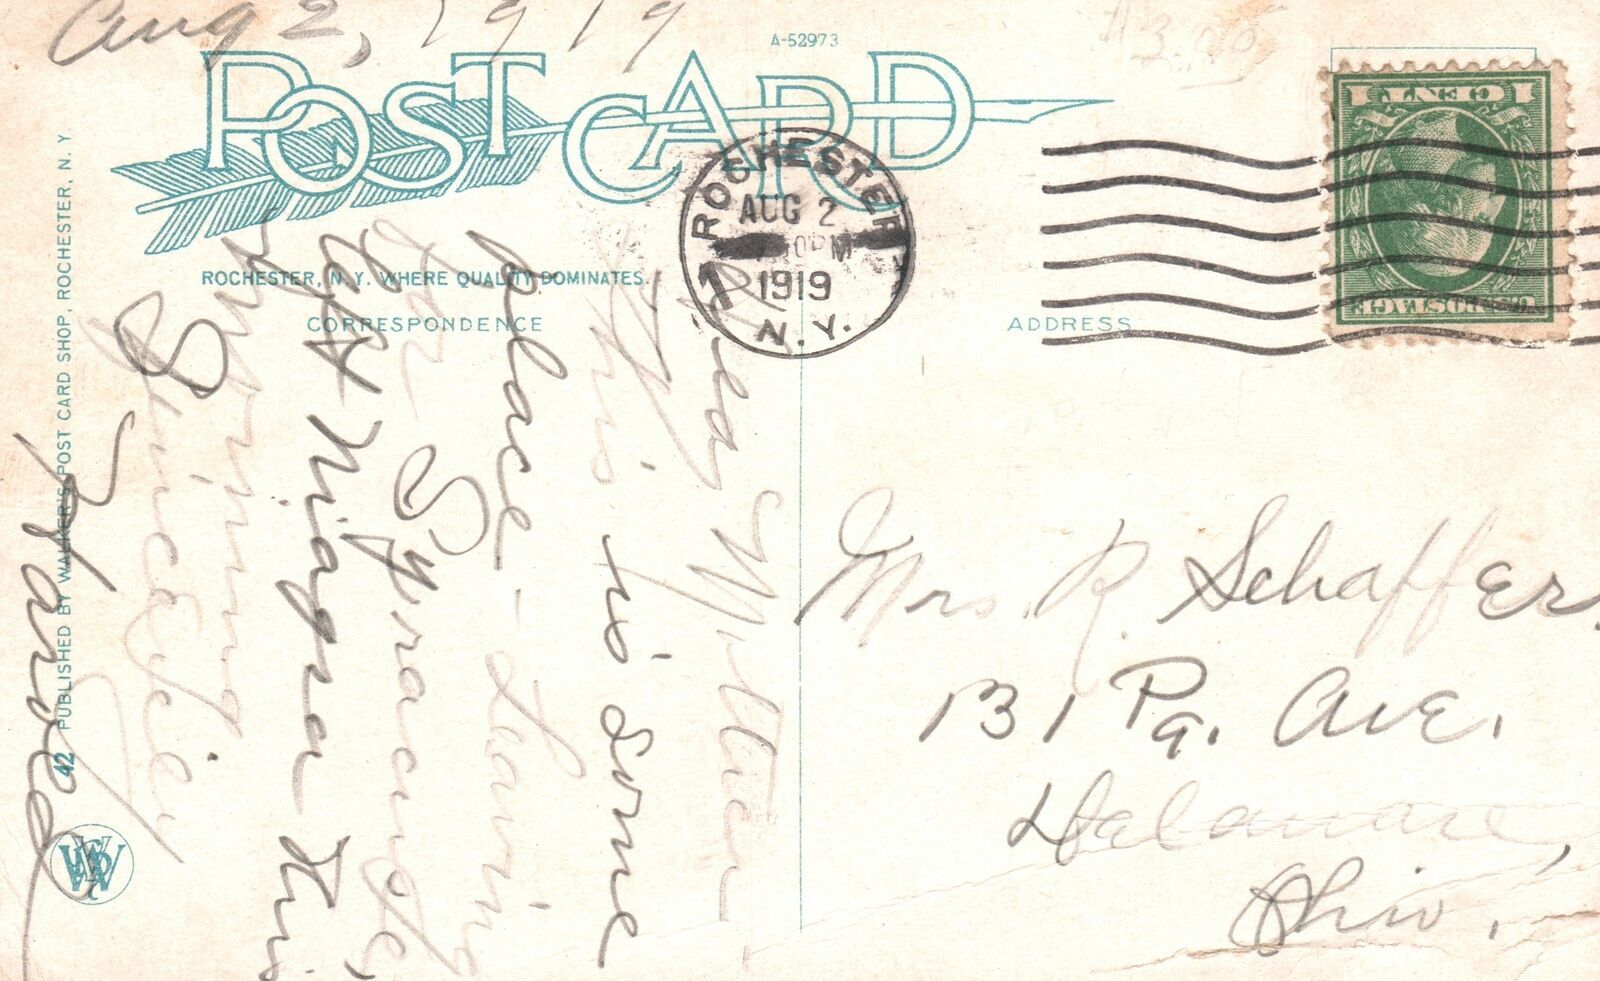 Aug 2, 1919
A-52973
$3.00
POST CARD
ROCHESTER, N. Y. WHERE QUALITY DOMINATES.
CORRESPONDENCE
ADDRESS
ROCHESTER
AUG 2
PM
1919
N.Y.
1 CENT 1
U.S. POSTAGE
Dear
This is some
place - Leaving
for Syracuse,
Left Niagra this
morning
Sincerely
Harold
Mrs. R. Schaffer.
131 Pa. Ave.
Delaware,
Ohio.
42 PUBLISHED BY WALKER'S POST CARD SHOP, ROCHESTER, N. Y.